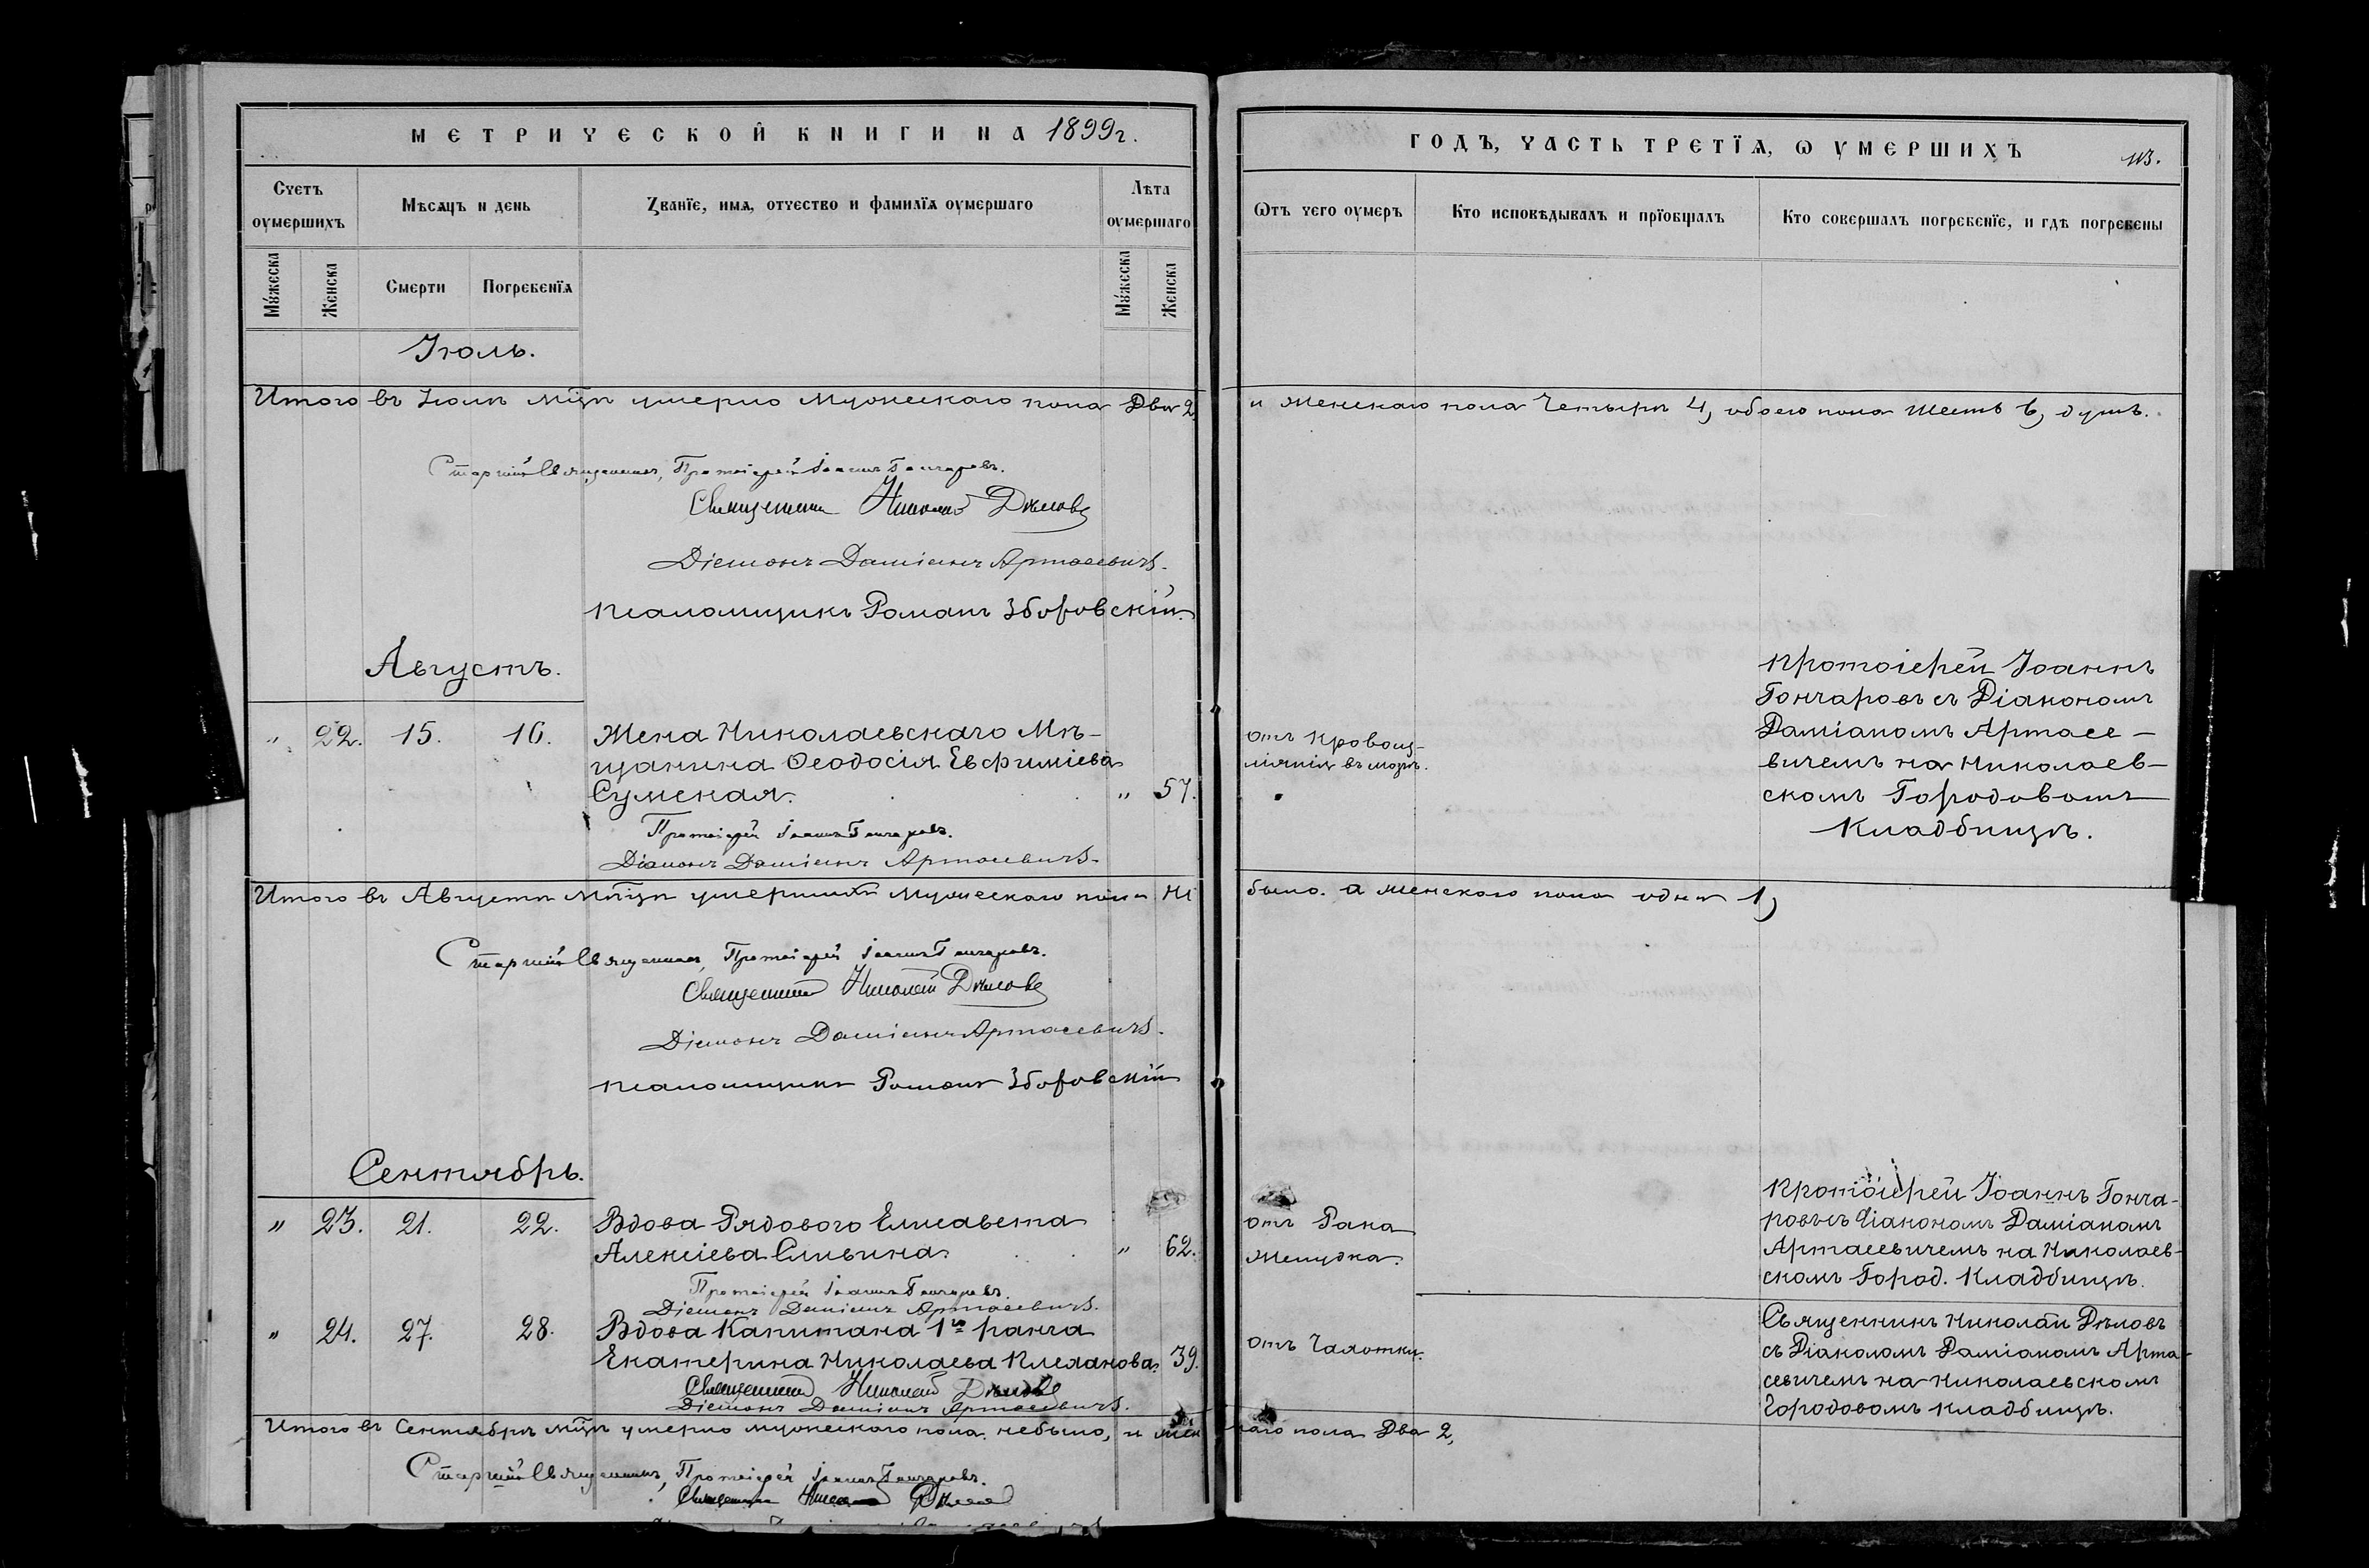 МЕТРИЧЕСКОЙ КНИГИ НА 1899 г.
Счетъ оумершихъ
Мѣсяцъ и день
Званїе, имя, отчество и фамилїя оумершаго
Лѣта оумершаго
Мужеска
Женска
Смерти
Погребенїя
Мужеска
Женска
Іюль.
Итого въ Іюлѣ мцѣ умерло Мужескаго пола Два 2,
Старшій Священникъ, Протоіерей Іоаннъ Гончаровъ.
Священникъ Николай Дѣловъ
Діаконъ Даміанъ Артасевичъ.
Псаломщикъ Романъ Зборовскій.
Августъ.
" 22. 15. 16. Жена Николаевскаго Мѣ-
щанина Ѳеодосія Евфиміева
Сумская. " 57.
Протоіерей Іоаннъ Гончаровъ.
Діаконъ Даміанъ Артасевичъ.
Итого въ Августѣ Мцѣ умершихъ Мужескаго пола не
Старшій Священникъ, Протоіерей Іоаннъ Гончаровъ.
Священникъ Николай Дѣловъ
Діаконъ Даміанъ Артасевичъ.
Псаломщикъ Романъ Зборовскій
Сентябрь.
" 23. 21. 22. Вдова Рядового Елисавета
Алексіева Сливина. " 62.
Протоіерей Іоаннъ Гончаровъ.
Діаконъ Даміанъ Артасевичъ.
" 24. 27. 28. Вдова Капитана 1го ранга
Екатерина Николаева Плеханова. 39.
Священникъ Николай Дѣловъ
Діаконъ Даміанъ Артасевичъ.
Итого въ Сентябрѣ мцѣ умерло мужескаго пола небыло, и жен
Старшій Священникъ, Протоіерей Іоаннъ Гончаровъ.
Священникъ Николай Дѣловъ
ГОДЪ, ЧАСТЬ ТРЕТЇЯ, Ѡ УМЕРШИХЪ
113.
Ѿтъ чего оумеръ
Кто исповѣдывалъ и прїобщалъ
Кто совершалъ погребенїе, и гдѣ погребены
и Женскаго пола Четыре 4, обоего пола Шесть 6, душъ.
отъ Кровоиз-
ліянія въ мозгъ.
Протоіерей Іоаннъ
Гончаровъ съ Діакономъ
Даміаномъ Артасе-
вичемъ на Николаев-
скомъ Городовомъ
Кладбищѣ.
было. а женскаго пола одна 1,
отъ Рака
Желудка.
Протоіерей Іоаннъ Гонча-
ровъ съ Діакономъ Даміаномъ
Артасевичемъ на Николаев-
скомъ Город. Кладбищѣ.
отъ Чахотки.
Священникъ Николай Дѣловъ
съ Діакономъ Даміаномъ Арта-
севичемъ на Николаевскомъ
Городовомъ кладбищѣ.
скаго пола Два 2,